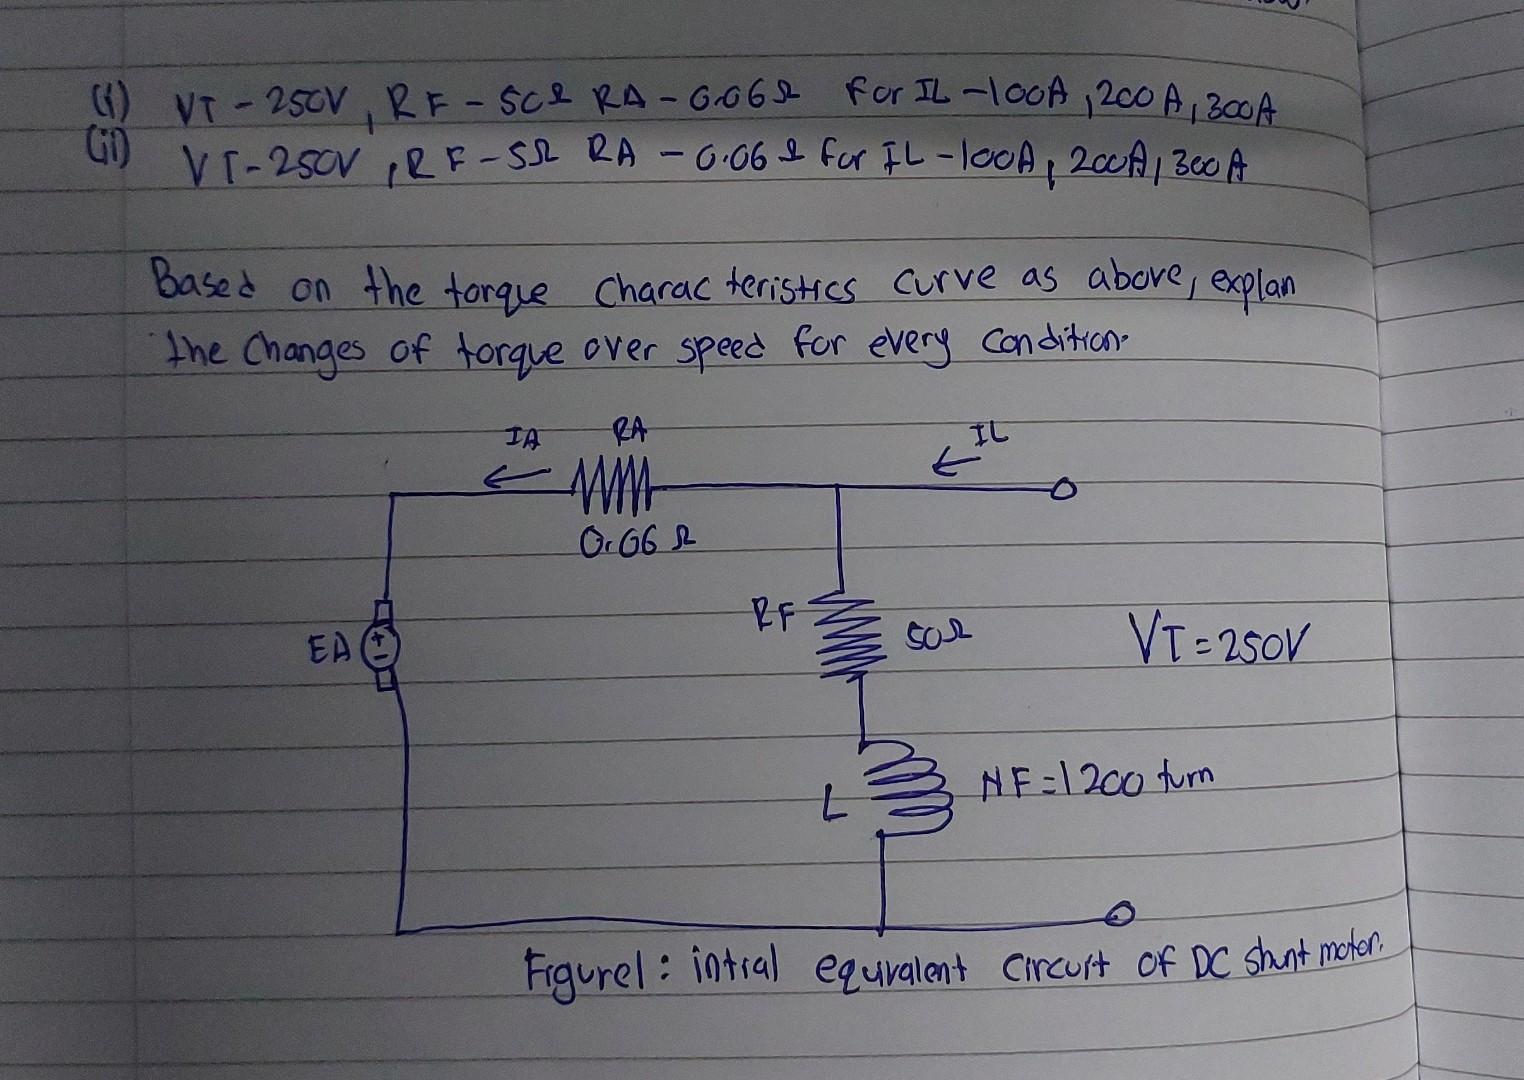 (i) VT - 250V, RF - 50Ω RA - 0.06Ω For IL - 100A, 200A, 300A
(ii) VT - 250V, RF - 5Ω RA - 0.06Ω For IL - 100A, 200A, 300A
Based on the torque Characteristics curve as above, explan
the Changes of torque over speed for every condition.
IA RA IL
0.06Ω
RF 50Ω VT = 250V
EA
L NF = 1200 turn
Figure1: intial equivalent circuit of DC shunt motor.